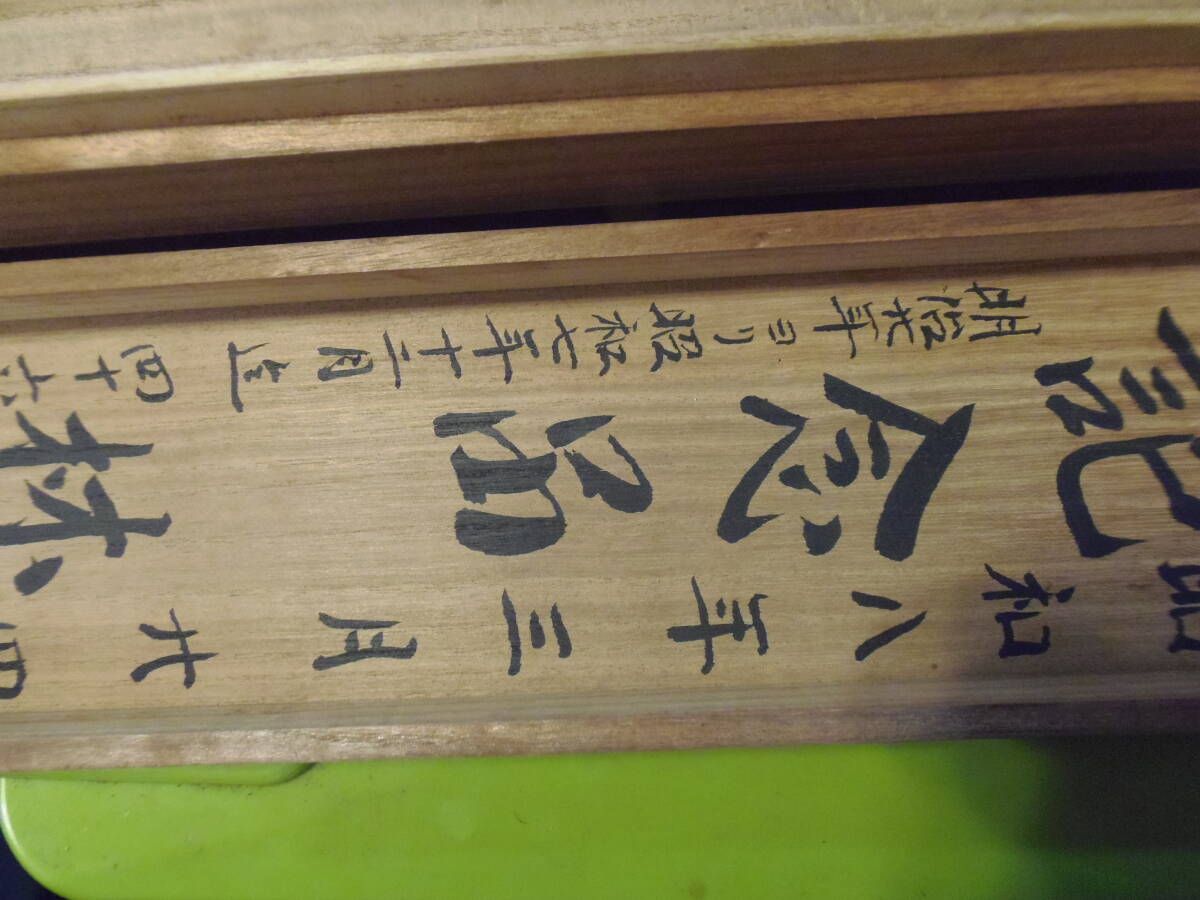 昭和八年三月廿四
記念品
明治廿年ヨリ昭和七年十二月迄四十六